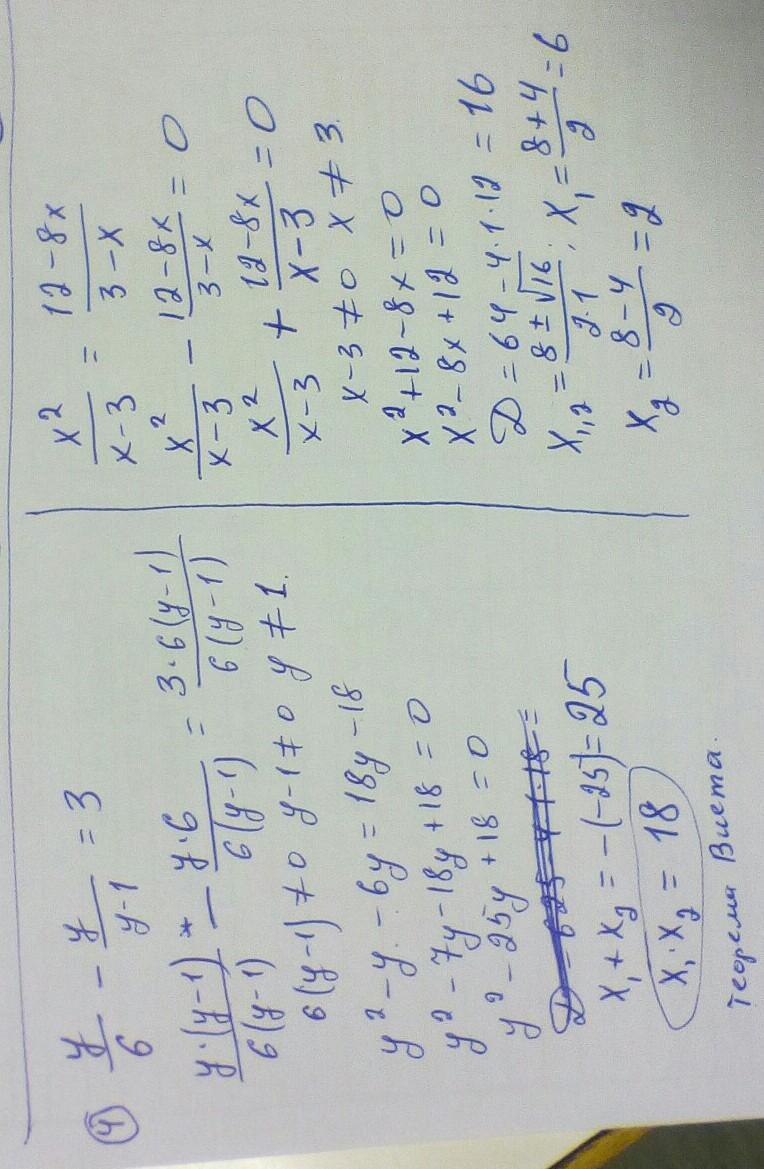 ④ y/6 - y/(y-1) = 3
y·(y-1)*/6(y-1) - y·6/6(y-1) = 3·6(y-1)/6(y-1)
6(y-1) ≠ 0 y-1 ≠ 0 y ≠ 1.
y² - y - 6y = 18y - 18
y² - 7y - 18y + 18 = 0
y² - 25y + 18 = 0
x₁ + x₂ = -(-25) = 25
x₁·x₂ = 18
теорема Виета.
x²/(x-3) = (12-8x)/(3-x)
x²/(x-3) - (12-8x)/(3-x) = 0
x²/(x-3) + (12-8x)/(x-3) = 0
x-3 ≠ 0 x ≠ 3.
x² + 12 - 8x = 0
x² - 8x + 12 = 0
D = 64 - 4·1·12 = 16
x₁,₂ = (8 ± √16)/(2·1); x₁ = (8+4)/2 = 6
x₂ = (8-4)/2 = 2